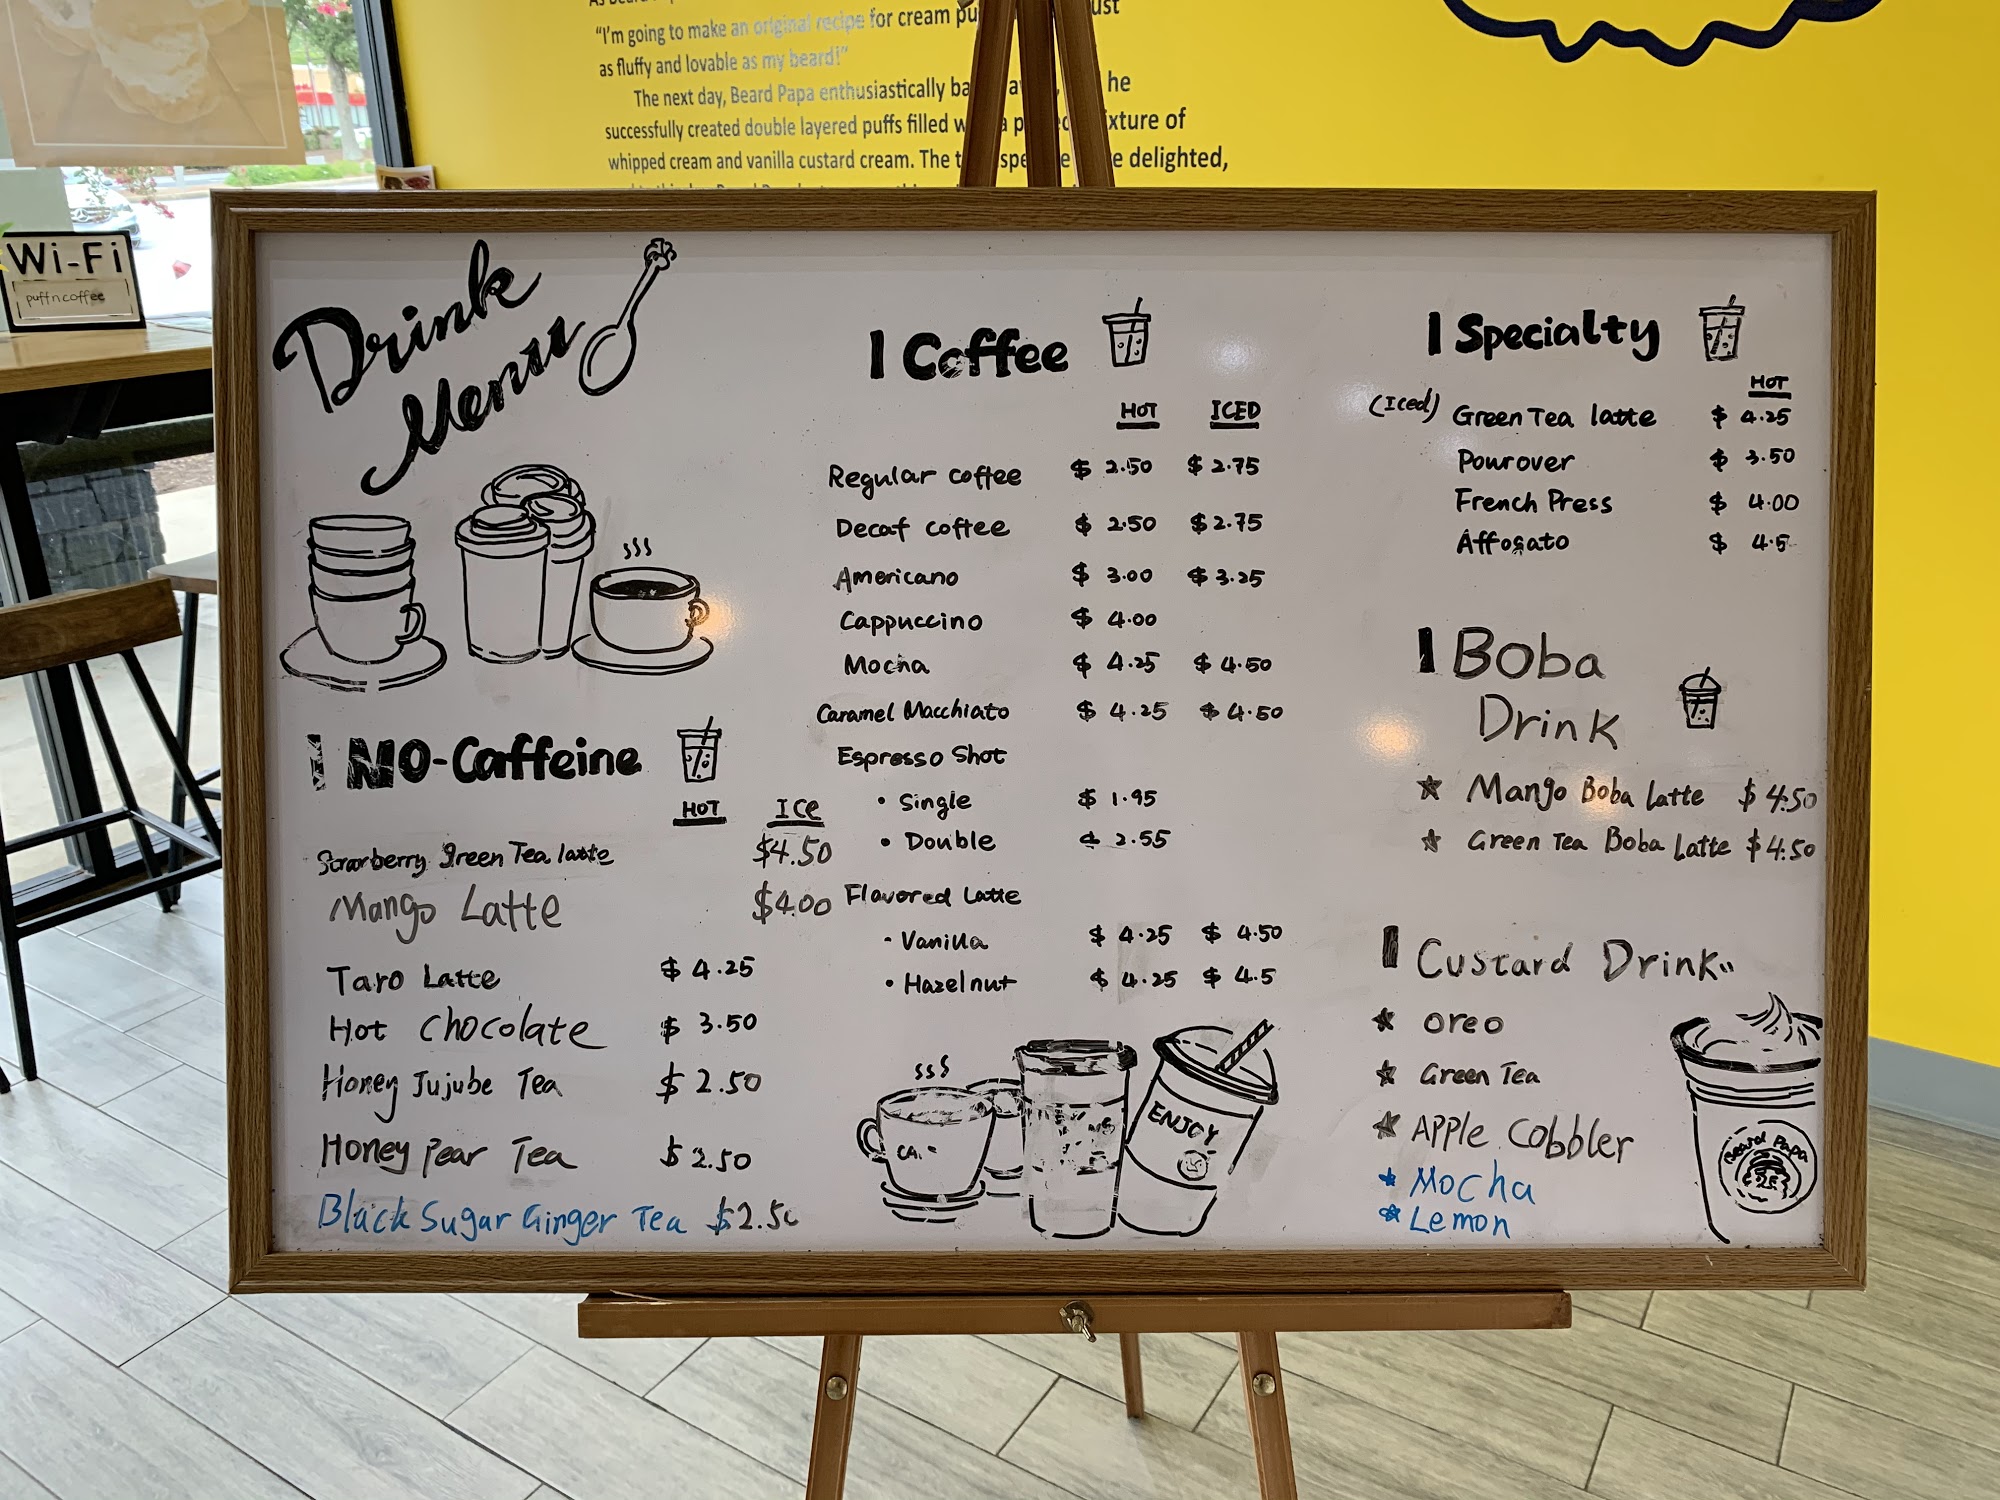 "I'm going to make an original recipe for cream
as fluffy and lovable as my beard!"
The next day, Beard Papa enthusiastically he
successfully created double layered puffs filled
whipped cream and vanilla custard cream. The delighted,
Wi-Fi
puffncoffee
Drink
Menu
Coffee
HOT ICED
Regular coffee $ 2.50 $ 2.75
Decaf coffee $ 2.50 $ 2.75
Americano $ 3.00 $ 3.25
Cappuccino $ 4.00
Mocha $ 4.25 $ 4.50
Caramel Macchiato $ 4.25 $ 4.50
Espresso Shot
• Single $ 1.95
• Double $ 2.55
Flavored Latte
• Vanilla $ 4.25 $ 4.50
• Hazelnut $ 4.25 $ 4.5
ENJOY
Specialty
HOT
(Iced) Green Tea latte $ 4.25
Pourover $ 3.50
French Press $ 4.00
Affogato $ 4.5
Boba
Drink
☆ Mango Boba Latte $ 4.50
☆ Green Tea Boba Latte $ 4.50
Custard Drink
☆ Oreo
☆ Green Tea
☆ Apple Cobbler
☆ Mocha
☆ Lemon
Beard Papa
NO-Caffeine
HOT ICe
Strawberry green Tea latte $4.50
Mango Latte $4.00
Taro Latte $ 4.25
Hot Chocolate $ 3.50
Honey Jujube Tea $ 2.50
Honey Pear Tea $ 2.50
Black Sugar Ginger Tea $2.50